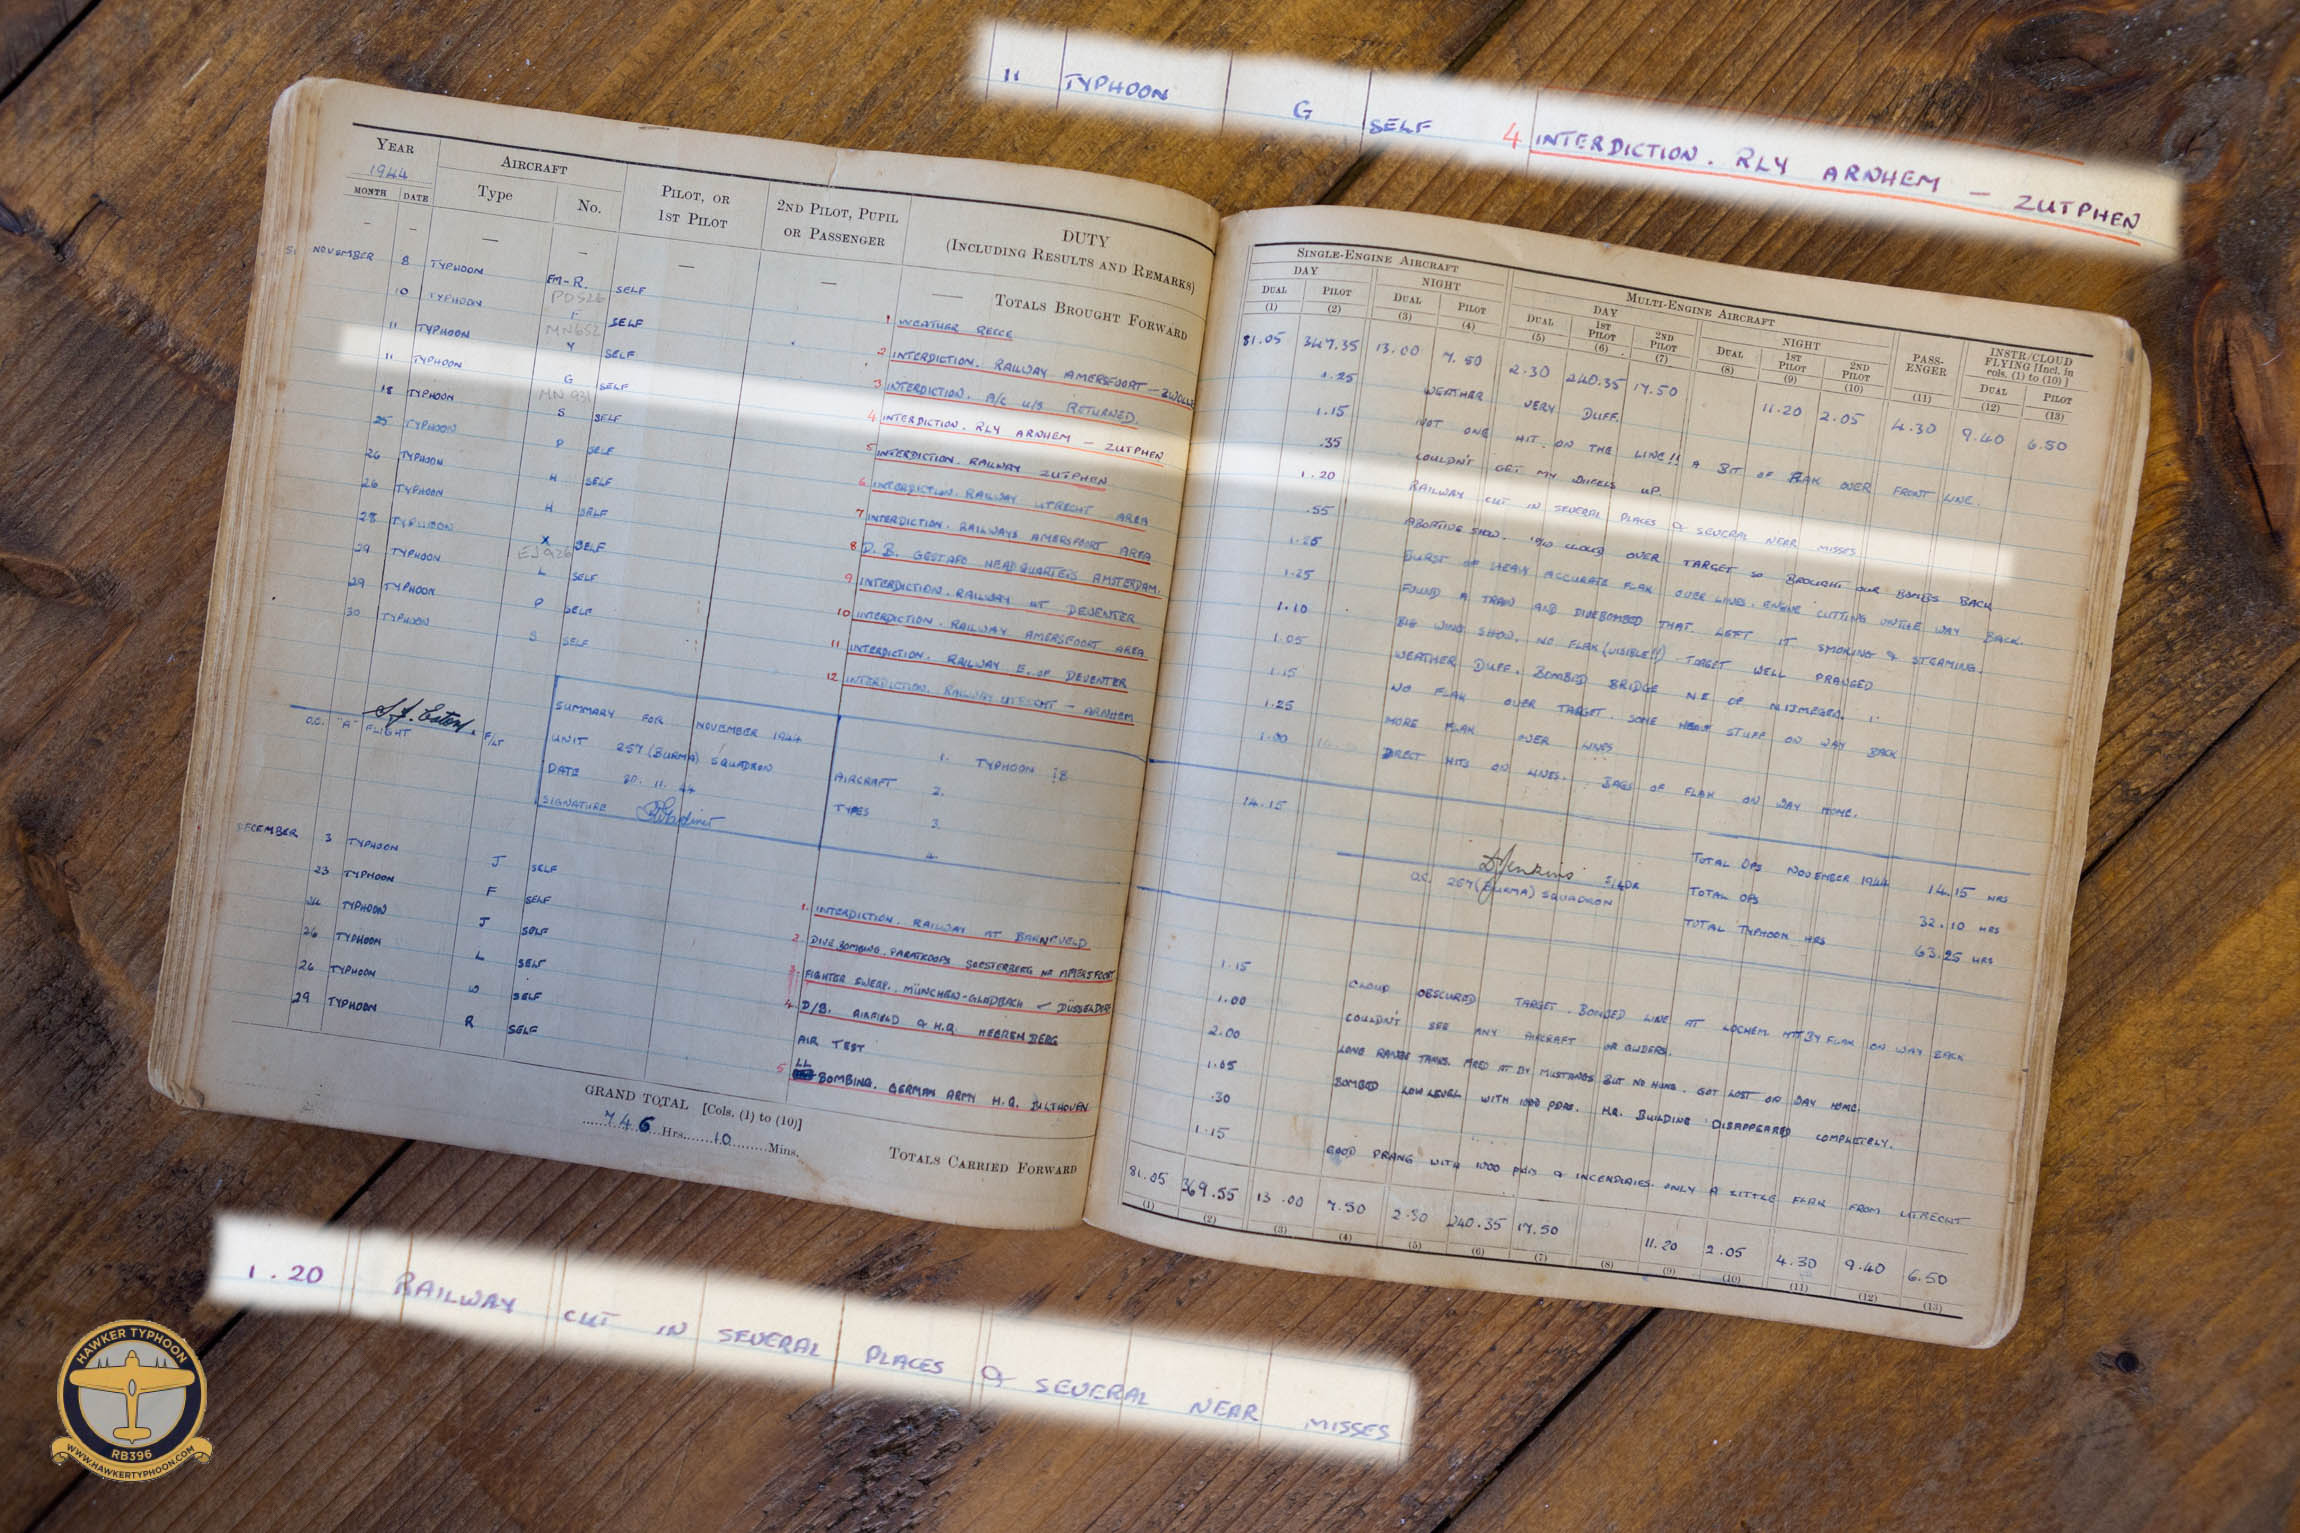 11 TYPHOON G SELF 4 INTERDICTION. RLY ARNHEM — ZUTPHEN
YEAR 1944
MONTH DATE
AIRCRAFT
Type No.
PILOT, OR
1ST PILOT
2ND PILOT, PUPIL
OR PASSENGER
DUTY
(INCLUDING RESULTS AND REMARKS)
— — — — — — —
TOTALS BROUGHT FORWARD
NOVEMBER 8 TYPHOON FM-R. SELF 1 WEATHER RECCE
PD526
10 TYPHOON F SELF 2 INTERDICTION. RAILWAY AMERSFOORT — ZWOLLE
MN652
11 TYPHOON Y SELF 3 INTERDICTION. A/C U/S RETURNED.
11 TYPHOON G SELF 4 INTERDICTION. RLY ARNHEM — ZUTPHEN
MN931
18 TYPHOON S SELF 5 INTERDICTION. RAILWAY ZUTPHEN
25 TYPHOON P SELF 6 INTERDICTION. RAILWAY UTRECHT AREA
26 TYPHOON H SELF 7 INTERDICTION. RAILWAYS AMERSFOORT AREA
26 TYPHOON H SELF 8 D.B. GESTAPO HEADQUARTERS AMSTERDAM.
28 TYPHOON X SELF 9 INTERDICTION. RAILWAY AT DEVENTER
EJ926
29 TYPHOON L SELF 10 INTERDICTION. RAILWAY AMERSFOORT AREA
29 TYPHOON P SELF 11 INTERDICTION. RAILWAY E. OF DEVENTER
30 TYPHOON S SELF 12 INTERDICTION. RAILWAY UTRECHT — ARNHEM
F/LT
O.C. "A" FLIGHT
SUMMARY FOR NOVEMBER 1944
UNIT 257 (BURMA) SQUADRON
DATE 30. 11. 44
SIGNATURE
AIRCRAFT
TYPES
1. TYPHOON
2.
3.
4.
DECEMBER 3 TYPHOON J SELF 1. INTERDICTION. RAILWAY AT BARNEVELD
23 TYPHOON F SELF 2. DIVE BOMBING. PARATROOPS SOESTERBERG NR AMERSFOORT
24 TYPHOON J SELF 3. FIGHTER SWEEP. MÜNCHEN-GLADBACH — DÜSSELDORF
26 TYPHOON L SELF 4. D/B. AIRFIELD & H.Q. HEERENBERG
26 TYPHOON W SELF AIR TEST
29 TYPHOON R SELF 5 LL BOMBING. GERMAN ARMY H.Q. BILTHOVEN
GRAND TOTAL [Cols. (1) to (10)]
746 Hrs. 10 Mins.
TOTALS CARRIED FORWARD
SINGLE-ENGINE AIRCRAFT
DAY NIGHT
DUAL PILOT DUAL PILOT
(1) (2) (3) (4)
MULTI-ENGINE AIRCRAFT
DAY NIGHT
DUAL 1ST PILOT 2ND PILOT DUAL 1ST PILOT 2ND PILOT
(5) (6) (7) (8) (9) (10)
PASS-
ENGER
(11)
INSTR/CLOUD
FLYING [Incl. in
cols. (1) to (10)]
DUAL PILOT
(12) (13)
81.05 347.35 13.00 7.50 2.30 240.35 17.50 11.20 2.05 4.30 9.40 6.50
1.25 WEATHER VERY DUFF.
1.15 NOT ONE HIT ON THE LINE!! A BIT OF FLAK OVER FRONT LINE.
.35 COULDN'T GET MY WHEELS UP.
1.20 RAILWAY CUT IN SEVERAL PLACES & SEVERAL NEAR MISSES
.55 ABORTIVE SHOW. 10/10 CLOUD OVER TARGET SO BROUGHT OUR BOMBS BACK
1.25 BURST OF HEAVY ACCURATE FLAK OVER LINES. ENGINE CUTTING ON THE WAY BACK.
1.25 FOUND A TRAIN AND DIVEBOMBED THAT. LEFT IT SMOKING & STEAMING.
1.10 BIG WING SHOW. NO FLAK (VISIBLE!!) TARGET WELL PRANGED
1.05 WEATHER DUFF. BOMBED BRIDGE N.E OF NIJMEGEN.
1.15 NO FLAK OVER TARGET. SOME HEAVY STUFF ON WAY BACK
1.25 MORE FLAK OVER LINES
1.00 DIRECT HITS ON LINES. BAGS OF FLAK ON WAY HOME.
14.15
DJenkins S/LDR
O.C. 257 (BURMA) SQUADRON
TOTAL OPS NOVEMBER 1944 14.15 HRS
TOTAL OPS 32.10 HRS
TOTAL TYPHOON HRS 63.25 HRS
1.15 CLOUD OBSCURED TARGET. BOMBED LINE AT LOCHEM. HIT BY FLAK ON WAY BACK
1.00 COULDN'T SEE ANY AIRCRAFT OR GLIDERS.
2.00 LONG RANGE TANKS. FIRED AT BY MUSTANGS BUT NO HUNS. GOT LOST ON WAY HOME.
1.05 BOMBED LOW LEVEL WITH 1000 PDRS. H.Q. BUILDING DISAPPEARED COMPLETELY.
.30
1.15 GOOD PRANG WITH 1000 PDRS & INCENDIARIES. ONLY A LITTLE FLAK FROM UTRECHT
81.05 369.55 13.00 7.50 2.30 240.35 17.50 11.20 2.05 4.30 9.40 6.50
(1) (2) (3) (4) (5) (6) (7) (8) (9) (10) (11) (12) (13)
1.20 RAILWAY CUT IN SEVERAL PLACES & SEVERAL NEAR MISSES
HAWKER TYPHOON
RB396
WWW.HAWKERTYPHOON.COM